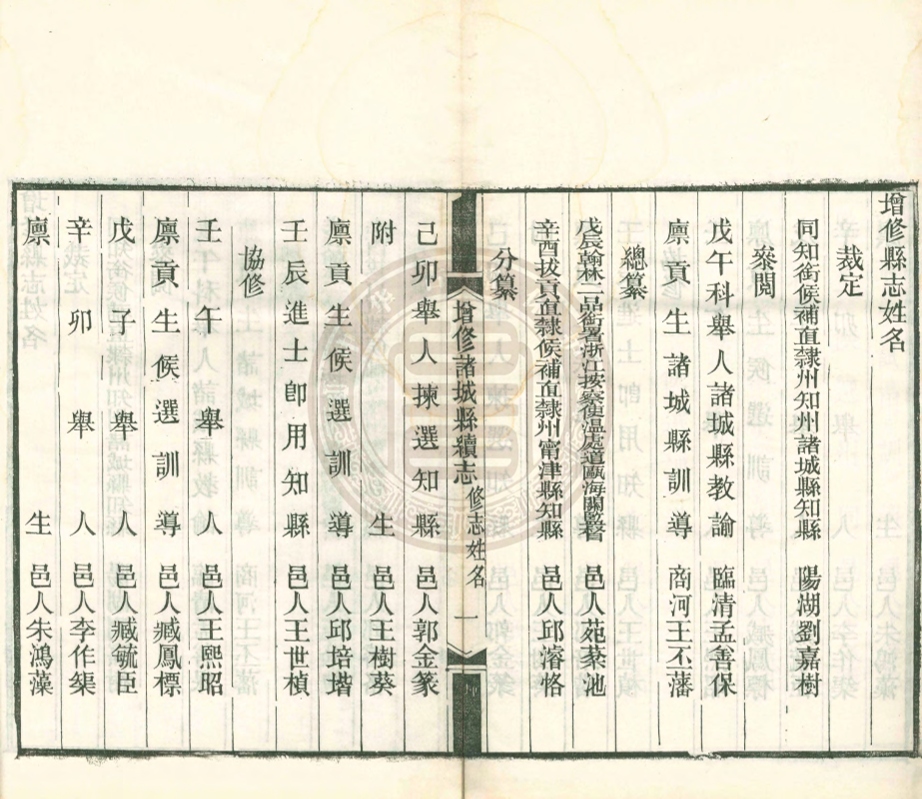 增修縣志姓名
裁定
同知銜候補直隸州知州諸城縣知縣 陽湖劉嘉樹
叅閱
戊午科舉人諸城縣教諭 臨清孟善保
廩貢生諸城縣訓導 商河王丕藩
總纂
戊辰翰林二品銜署浙江按察使溫處道甌海關監督 邑人苑棻池
辛酉拔貢直隸候補直隸州甯津縣知縣 邑人邱溶恪
分纂
己卯舉人揀選知縣 邑人郭金篆
附生 邑人王樹葵
廩貢生候選訓導 邑人邱培堦
壬辰進士卽用知縣 邑人王世楨
協修
壬午舉人 邑人王熙昭
廩貢生候選訓導 邑人臧鳳標
戊子舉人 邑人臧毓臣
辛卯舉人 邑人李作榘
廩生 邑人朱鴻藻
增修諸城縣續志 修志姓名 一